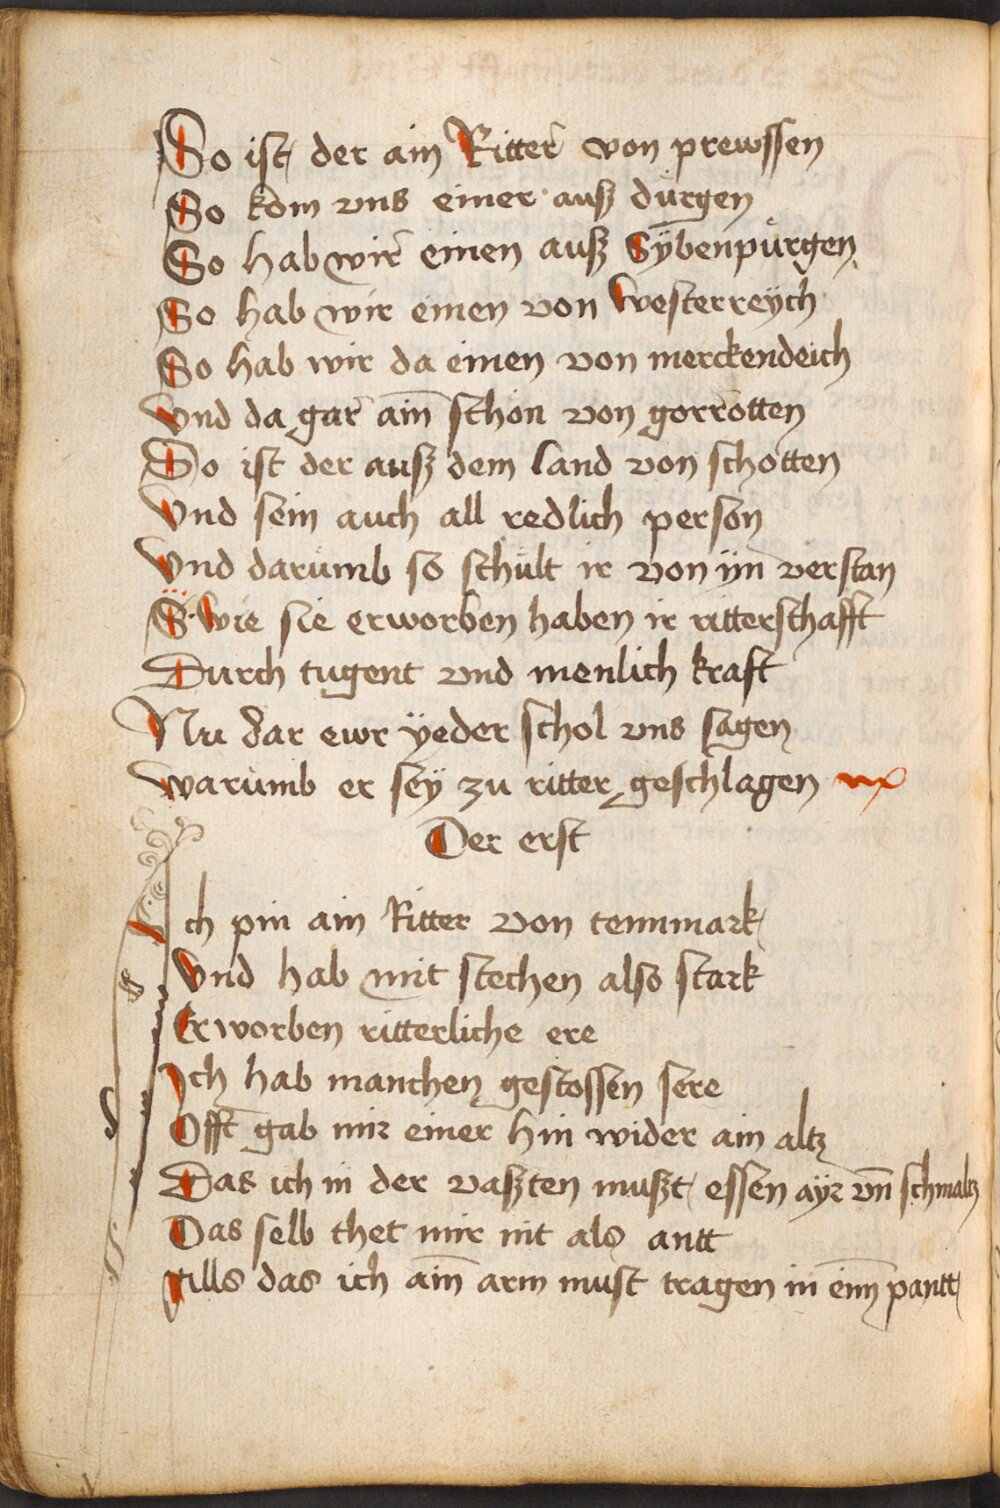 So ist der ain Ritter von prewssen
So kom vns einer auß dürgen
So hab wir einen auß Sÿbenpürgen
So hab wir einen von westerreÿch
So hab wir da einen von merckendeich
Vnd da gar ain̄ schon von gorrotten
So ist der auß dem land von schotten
Vnd sein auch all redlich person
Vnd darumb so schült ir von iin verstan
S wie sie erworben haben ir ritterschafft
Durch tugent vnd menlich kraft
Nu dar ewr ÿeder schol vns sagen
warumb er seÿ zu ritter geschlagen
Der erst
Ich pin ain Ritter von tennmark
Vnd hab mit stechen also stark
Erworben ritterliche ere
Ich hab manchen gestossen sere
Offt gab mir einer hin wider ain altz
Das ich in der vaßten mußt essen aÿr vn̄ schmaltz
Das selb thet mir nit als antt
Alls das ich ain̄ arm must tragen in eim̄ pantt